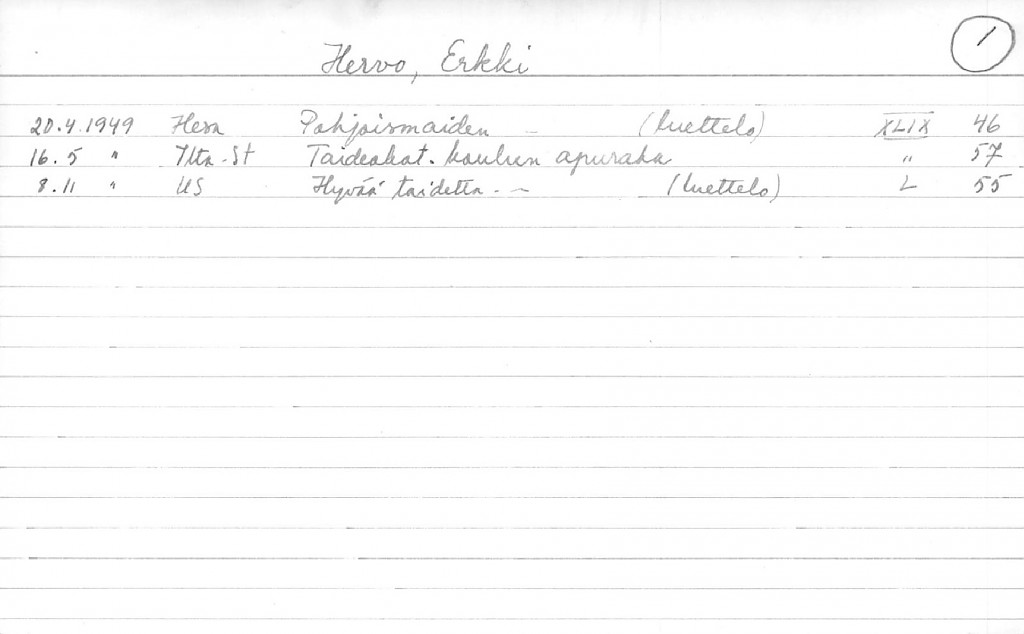 1
Hervo, Erkki
20.4.1949 Hesa Pohjoismaiden – (luettelo) XLIX 46
16.5 " Ilta-St Taideakat. koulun apuraha " 57
8.11 " US Hyvää taidetta - – (luettelo) L 55